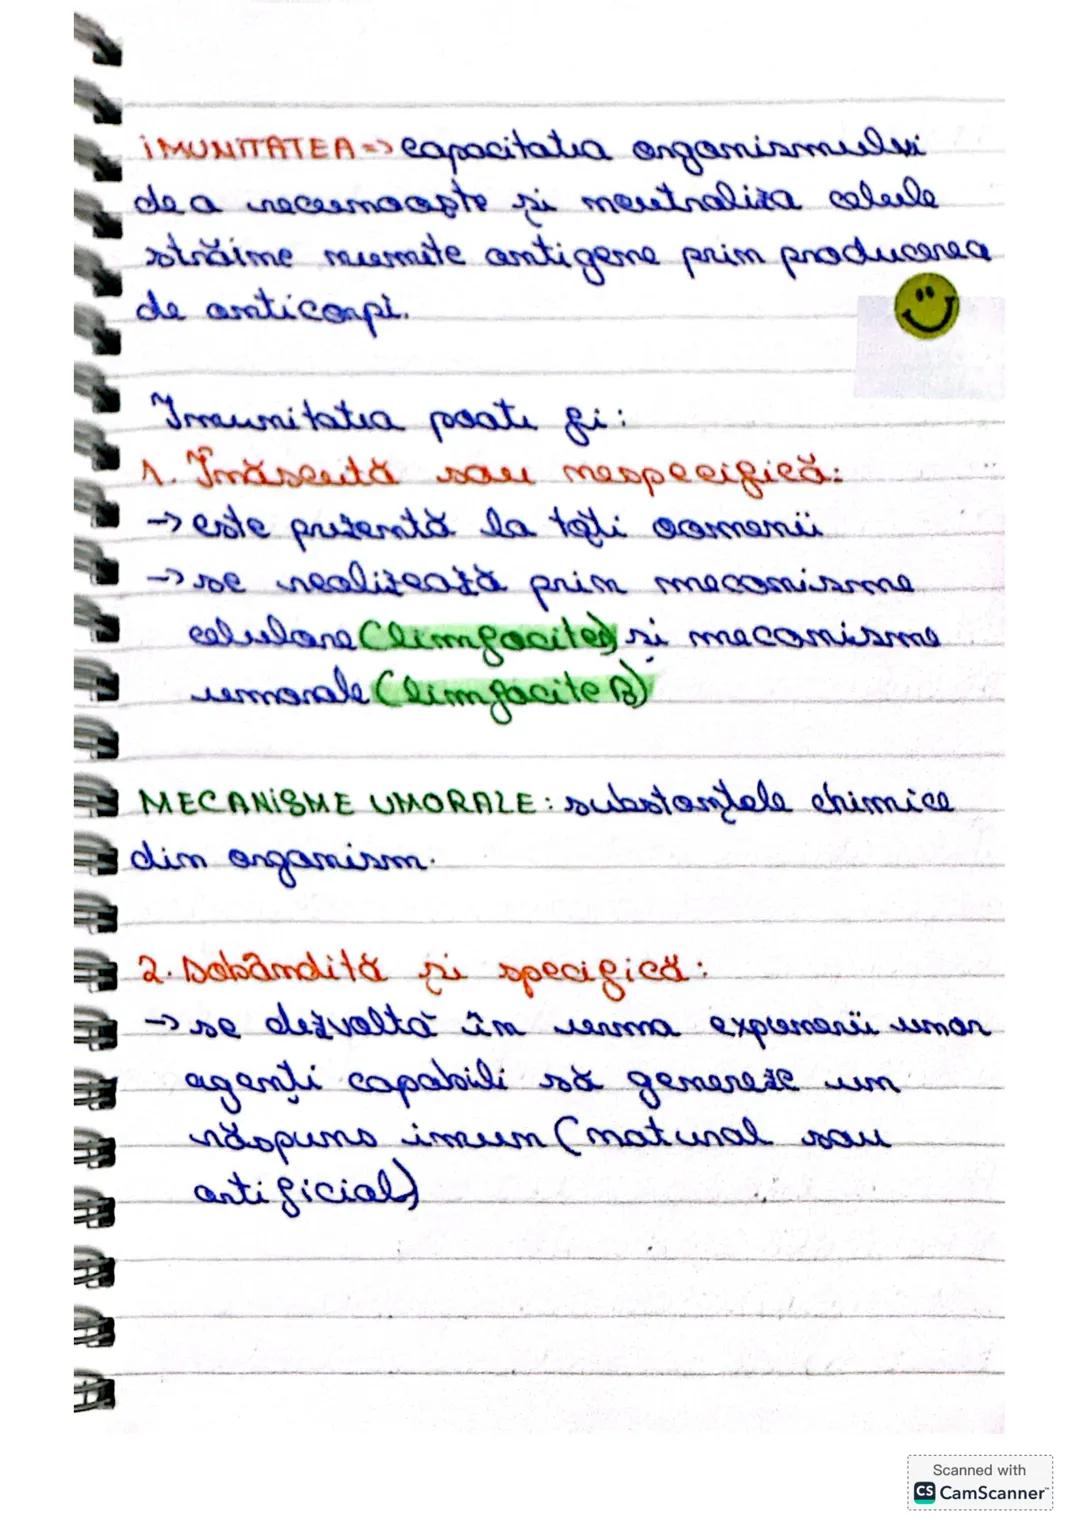 IMUNITATEA => capacitatea organismului
de a recunoaște și neutraliza celule
străine numite antigene prin producerea
de anticorpi.
Imunitatea poate fi:
1. Înăscută sau nespecifică:
→ este prezentă la toți oamenii
→ se realizează prin mecanisme
celulare (limfocite) și mecanisme
umorale (limfocite B)
MECANISME UMORALE: substanțele chimice
din organism.
2. Dobândită și specifică:
→ se dezvoltă în urma expunerii unor
agenți capabili să genereze un
răspuns imun (natural sau
artificial)
Scanned with
CS CamScanner